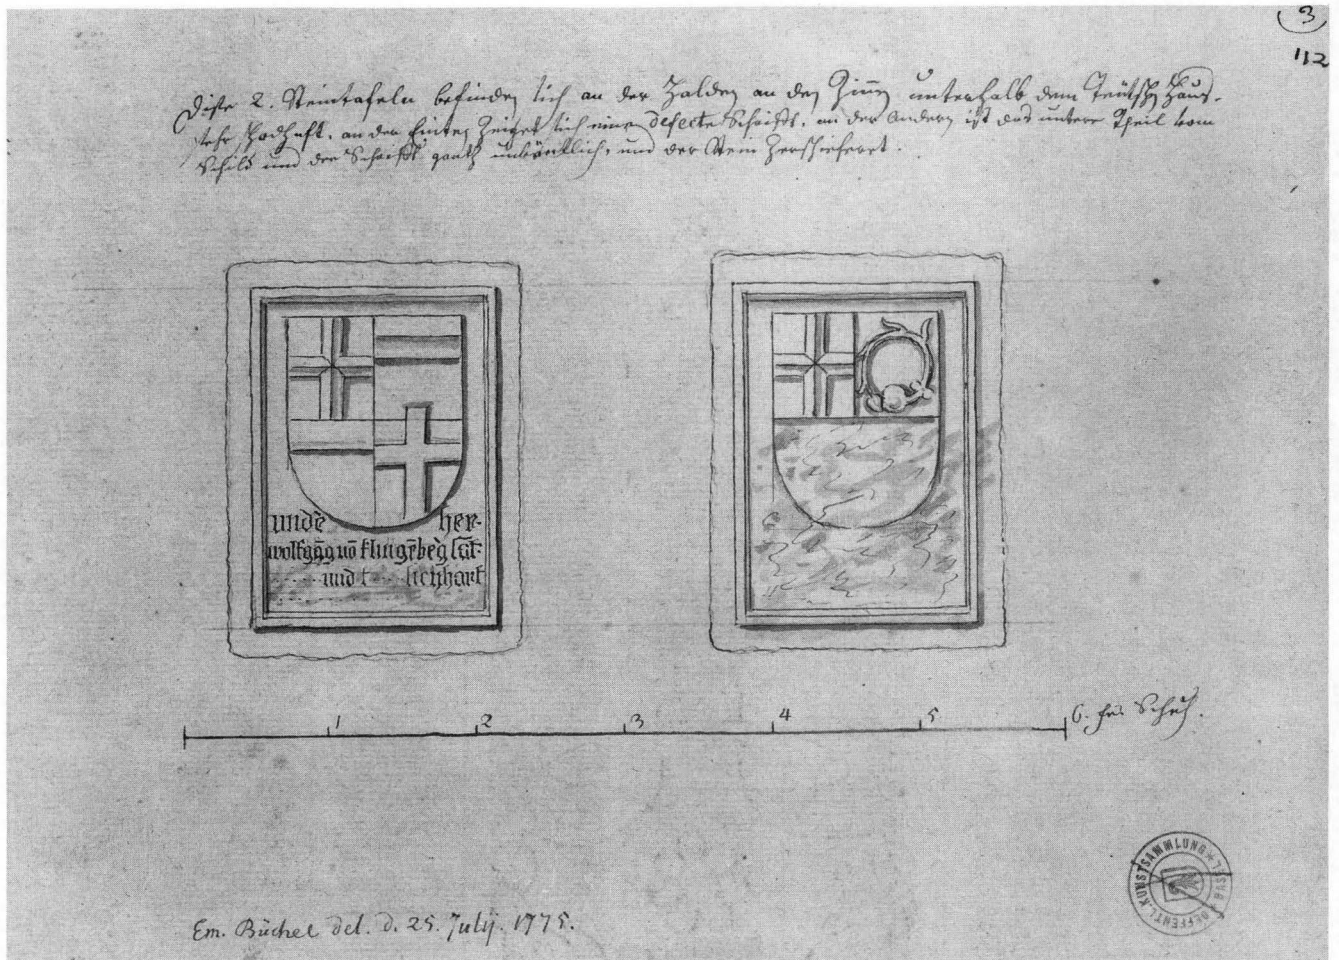 3
112
Diese 2. Steintafeln befinden sich an der Halden an den Zinnen unterhalb dem Teütschen Haus.
sehr schadhaft. an der Einten Zeiget sich eine defecte Schrifft, an der Andern ist das untere Theil vom
Schild und der Schrifft gantz unkäntlich, und der Stein Zerschiefferet.
unde her-
wolfgãg võ klingẽbẽg
und lienhart
1 2 3 4 5 6. fr. Schuh.
Em. Büchel del. d. 25. Julij. 1775.
OEFFENTL. KUNSTSAMMLUNG * BASEL